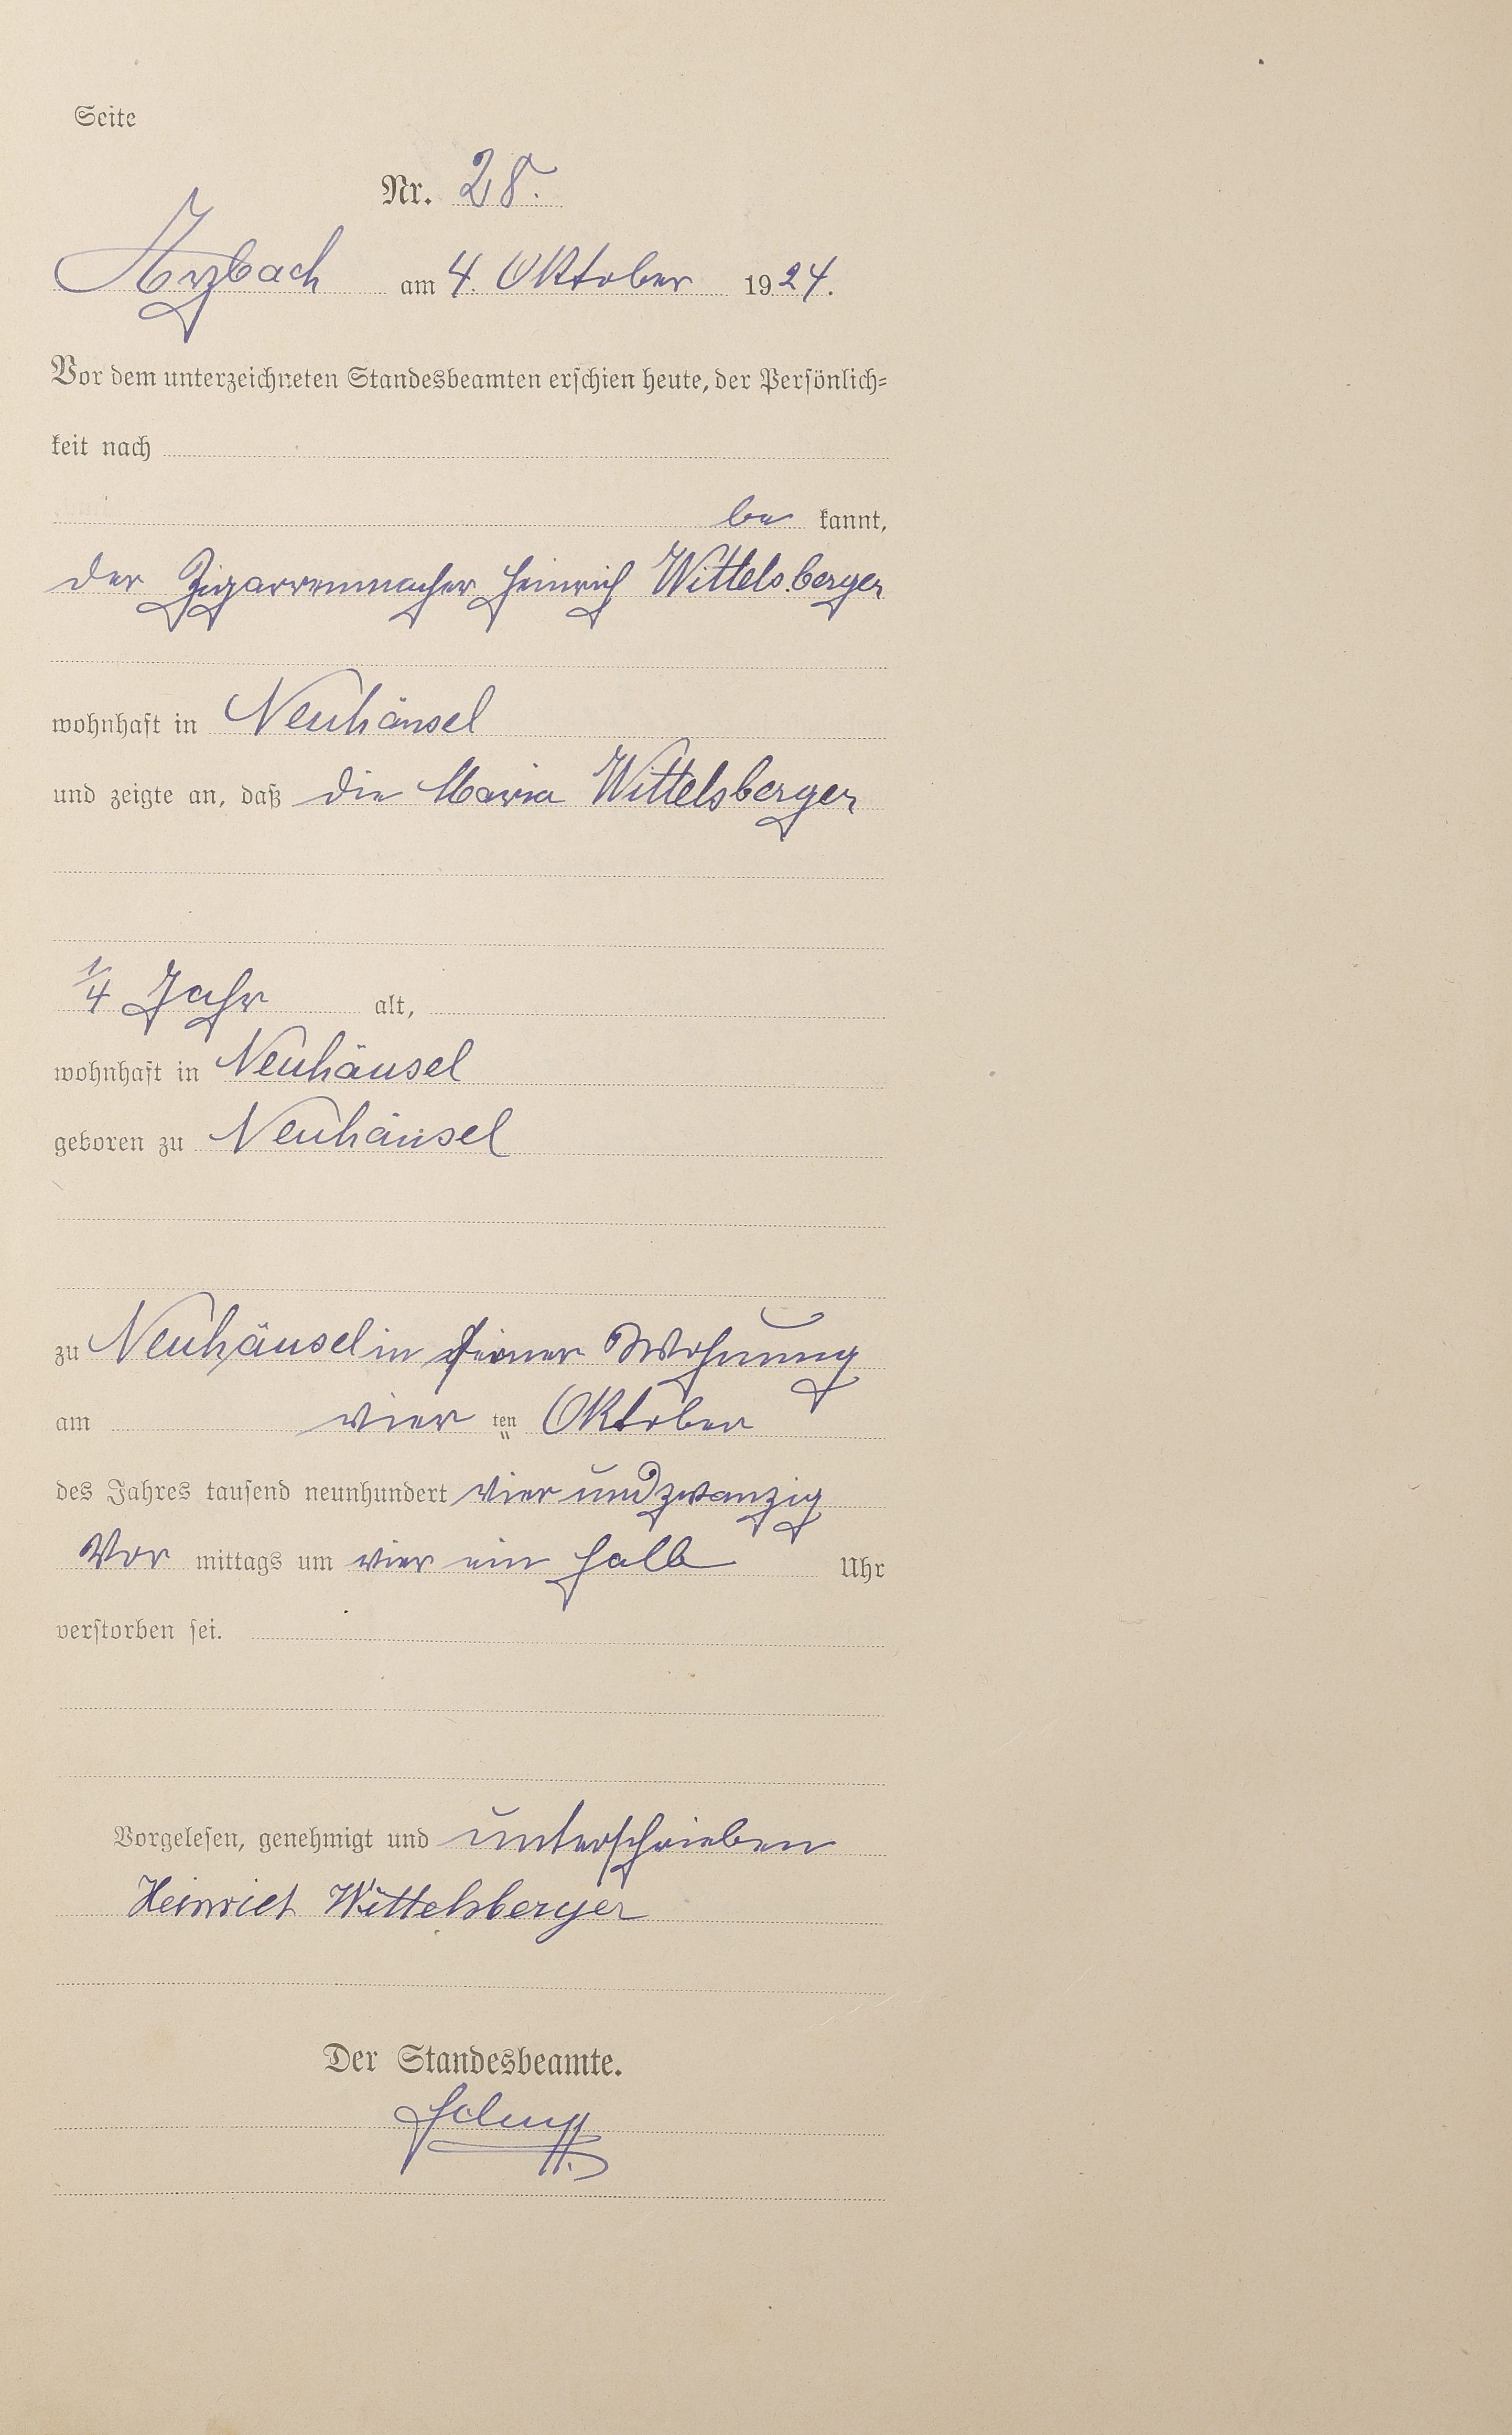 Seite
Nr. 28.
Arzbach am 4. Oktober 1924.
Vor dem unterzeichneten Standesbeamten erschien heute, der Persönlich-
keit nach
be kannt,
der Zigarrenmacher Heinrich Wittelsberger
wohnhaft in Neuhäusel
und zeigte an, daß die Maria Wittelsberger
1/4 Jahr alt,
wohnhaft in Neuhäusel
geboren zu Neuhäusel
zu Neuhäusel in seiner Wohnung
am vier ten Oktober
des Jahres tausend neunhundert vier und zwanzig
Vor mittags um vier ein halb Uhr
verstorben sei.
Vorgelesen, genehmigt und unterschrieben
Heinrich Wittelsberger
Der Standesbeamte.